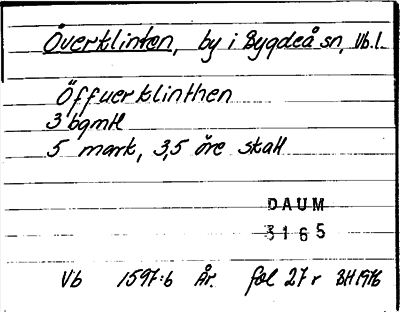 Överklinten, by i Bygdeå sn, Vb.l.
Öffuerklinthen
3 bgmtl
5 mark, 3,5 öre skatt
DAUM
3165
Vb 1597:6 År. fol 27r BH 1976